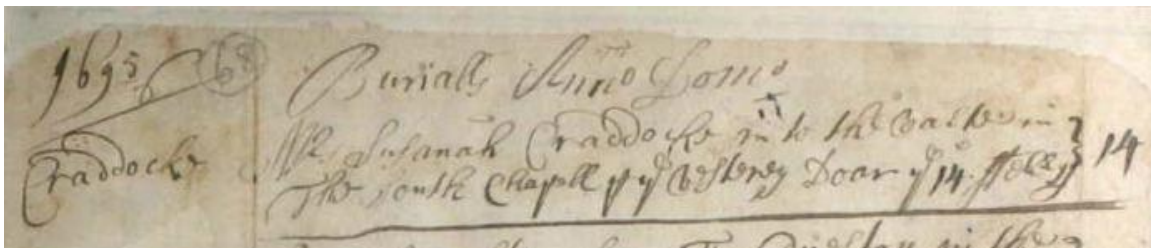 1695/6
Burialls Anno Domo
Craddocke
Mrs Susanah Craddocke in to the Valte in
The South Chapell by ye Vesterey Doar ye 14 ffeby 14
in the